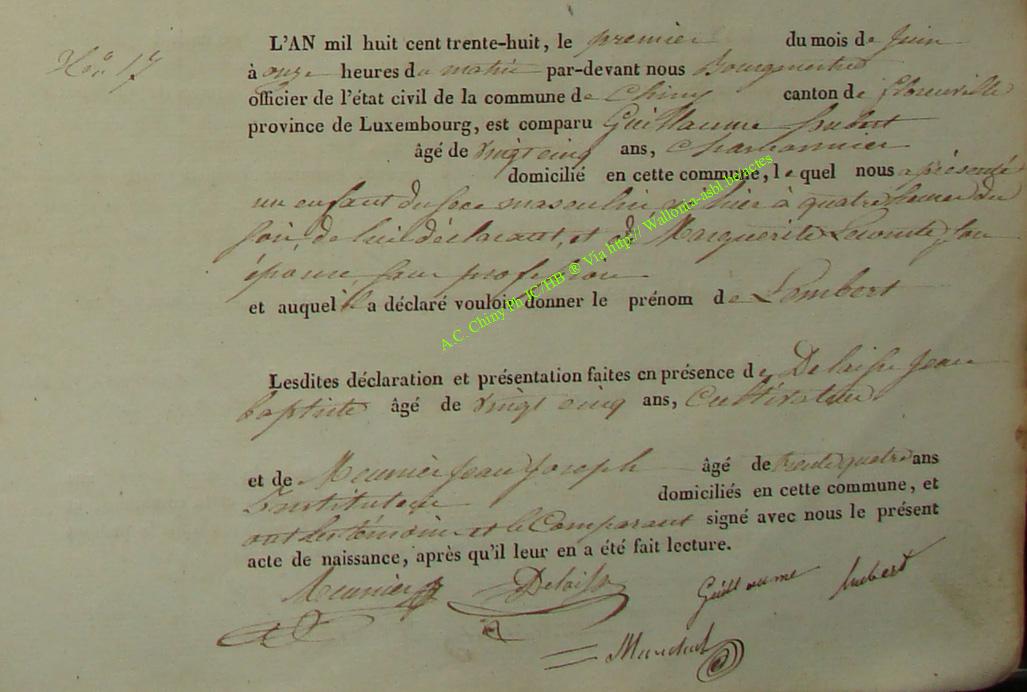 No. 17
L'AN mil huit cent trente-huit, le premier du mois de Juin
à onze heures du matin par-devant nous Bourgmestre
officier de l'état civil de la commune de Chiny canton de Florenville
province de Luxembourg, est comparu Guillaume hubert
âgé de vingt cinq ans, charbonnier
domicilié en cette commune, lequel nous a présenté
un enfant du sexe masculin né hier à quatre heures du
soir, de lui déclarant, et de Marguerite Lecomte son
épouse, sans profession
et auquel il a déclaré vouloir donner le prénom de Lambert
Lesdites déclaration et présentation faites en présence de Delaisse Jean
baptiste âgé de vingt cinq ans, Cultivateur
et de Meunier Jean Joseph âgé de trente quatre ans
Instituteur domiciliés en cette commune, et
ont les témoins et le Comparant signé avec nous le présent
acte de naissance, après qu'il leur en a été fait lecture.
Meunier Delaisse Guillaume hubert
A.C. Chiny Ph JC/HB ® Via http// Wallonia-asbl-benctes